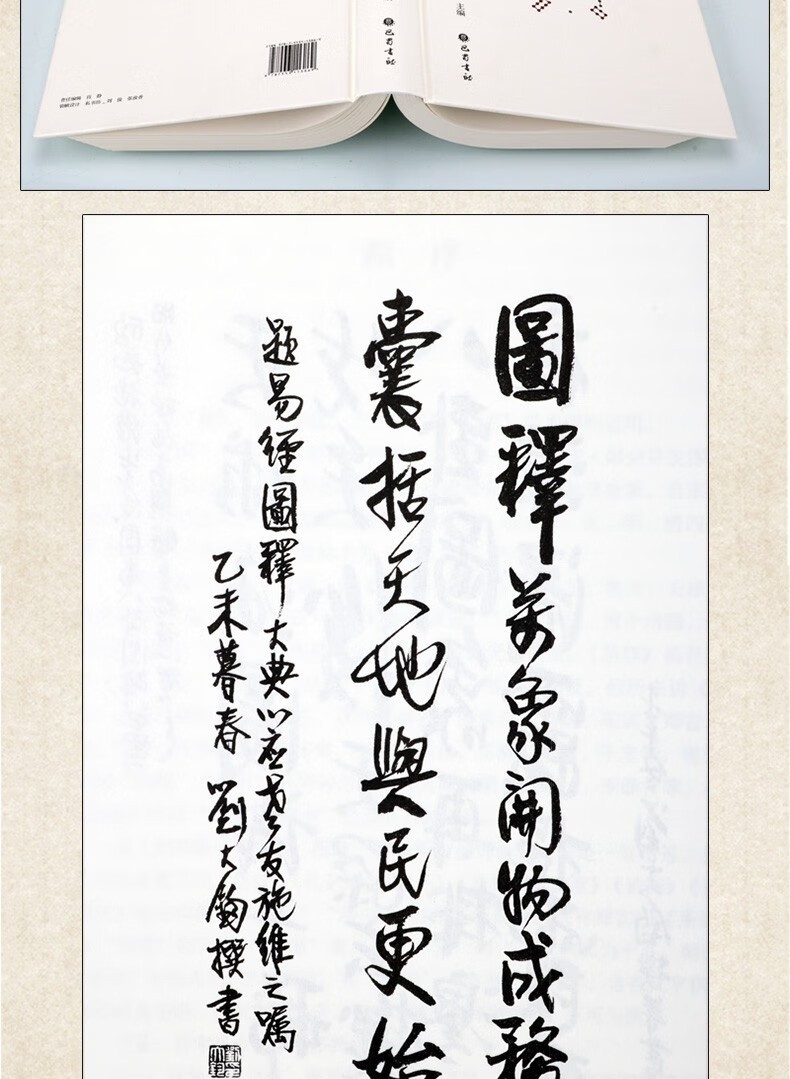 主编
巴蜀书社
巴蜀书社
责任编辑
圖釋萬象開物成務
囊括天地與民更始
題易經圖釋大典以应老友施維之囑
乙未暮春 劉大鈞撰書